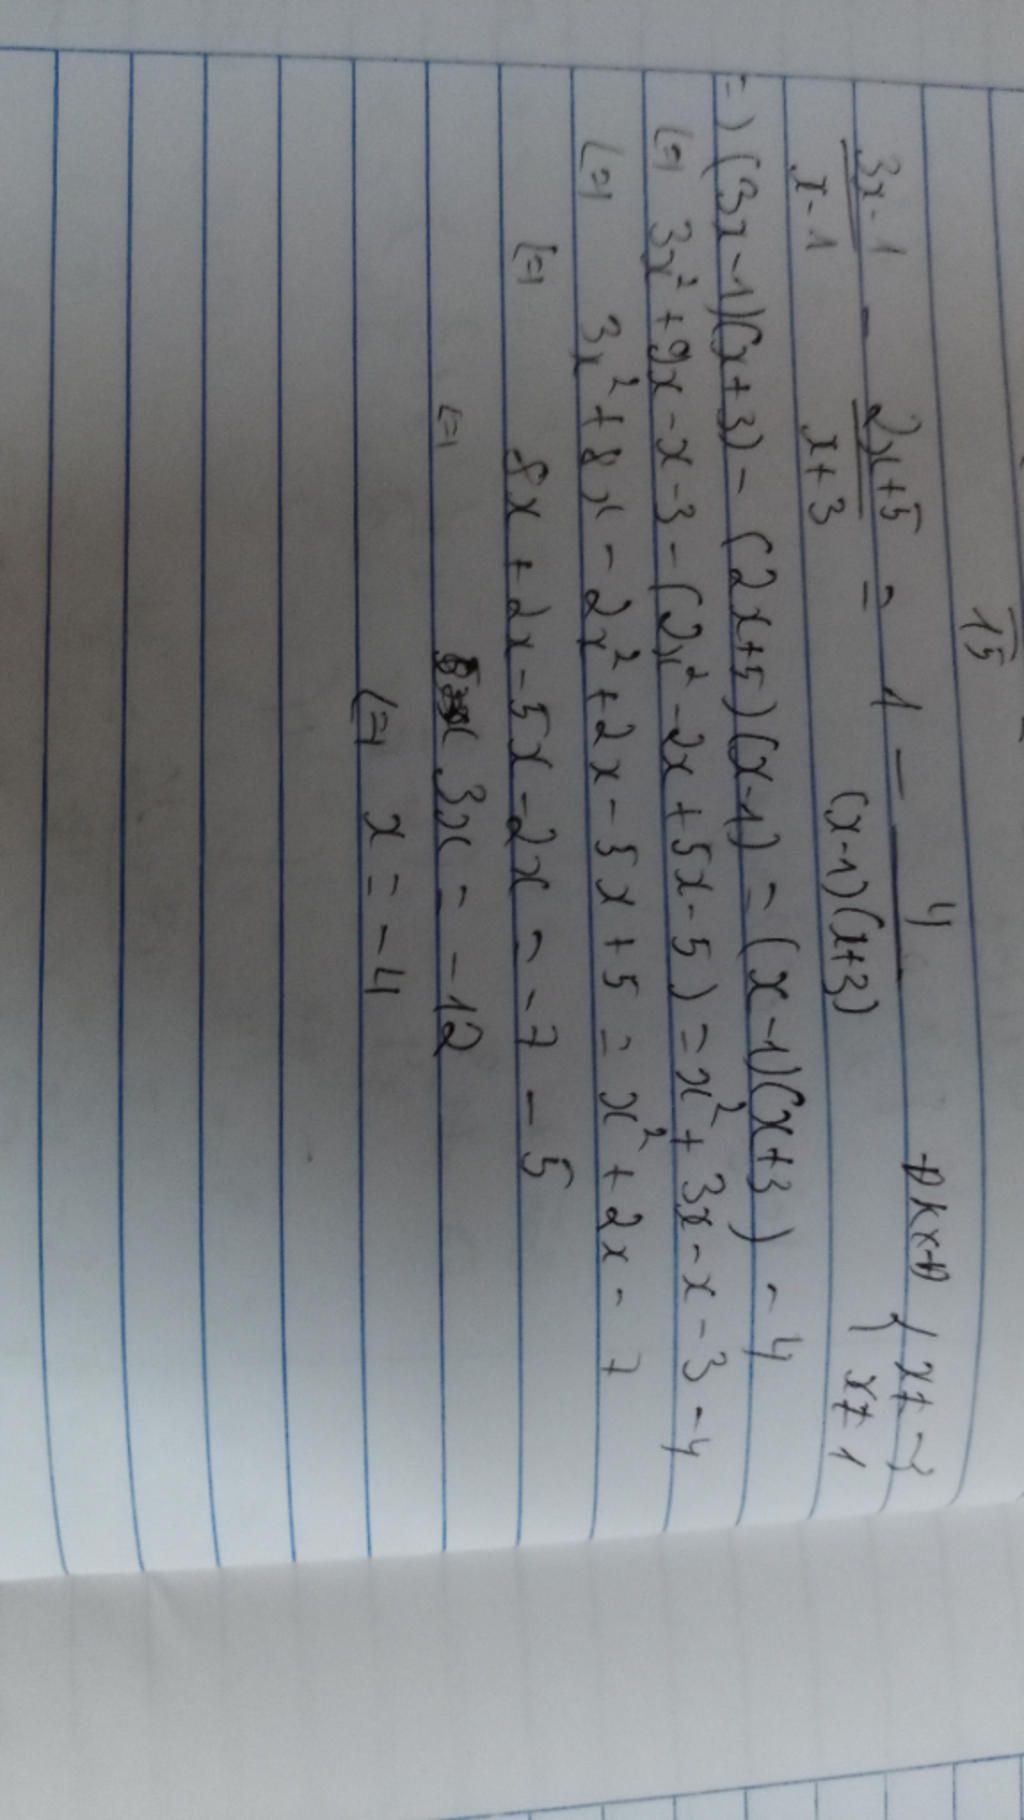 15
3x-1/x-1 - 2x+5/x+3 = 1 - 4/(x-1)(x+3) ĐKXĐ { x≠-3 x≠1
=) (3x-1)(x+3) - (2x+5)(x-1) = (x-1)(x+3) - 4
(=) 3x² + 9x - x - 3 - (2x² - 2x + 5x - 5) = x² + 3x - x - 3 - 4
(=) 3x² + 8x - 2x² + 2x - 5x + 5 = x² + 2x - 7
(=) 8x + 2x - 5x - 2x = -7 - 5
(=) 3x = -12
(=) x = -4